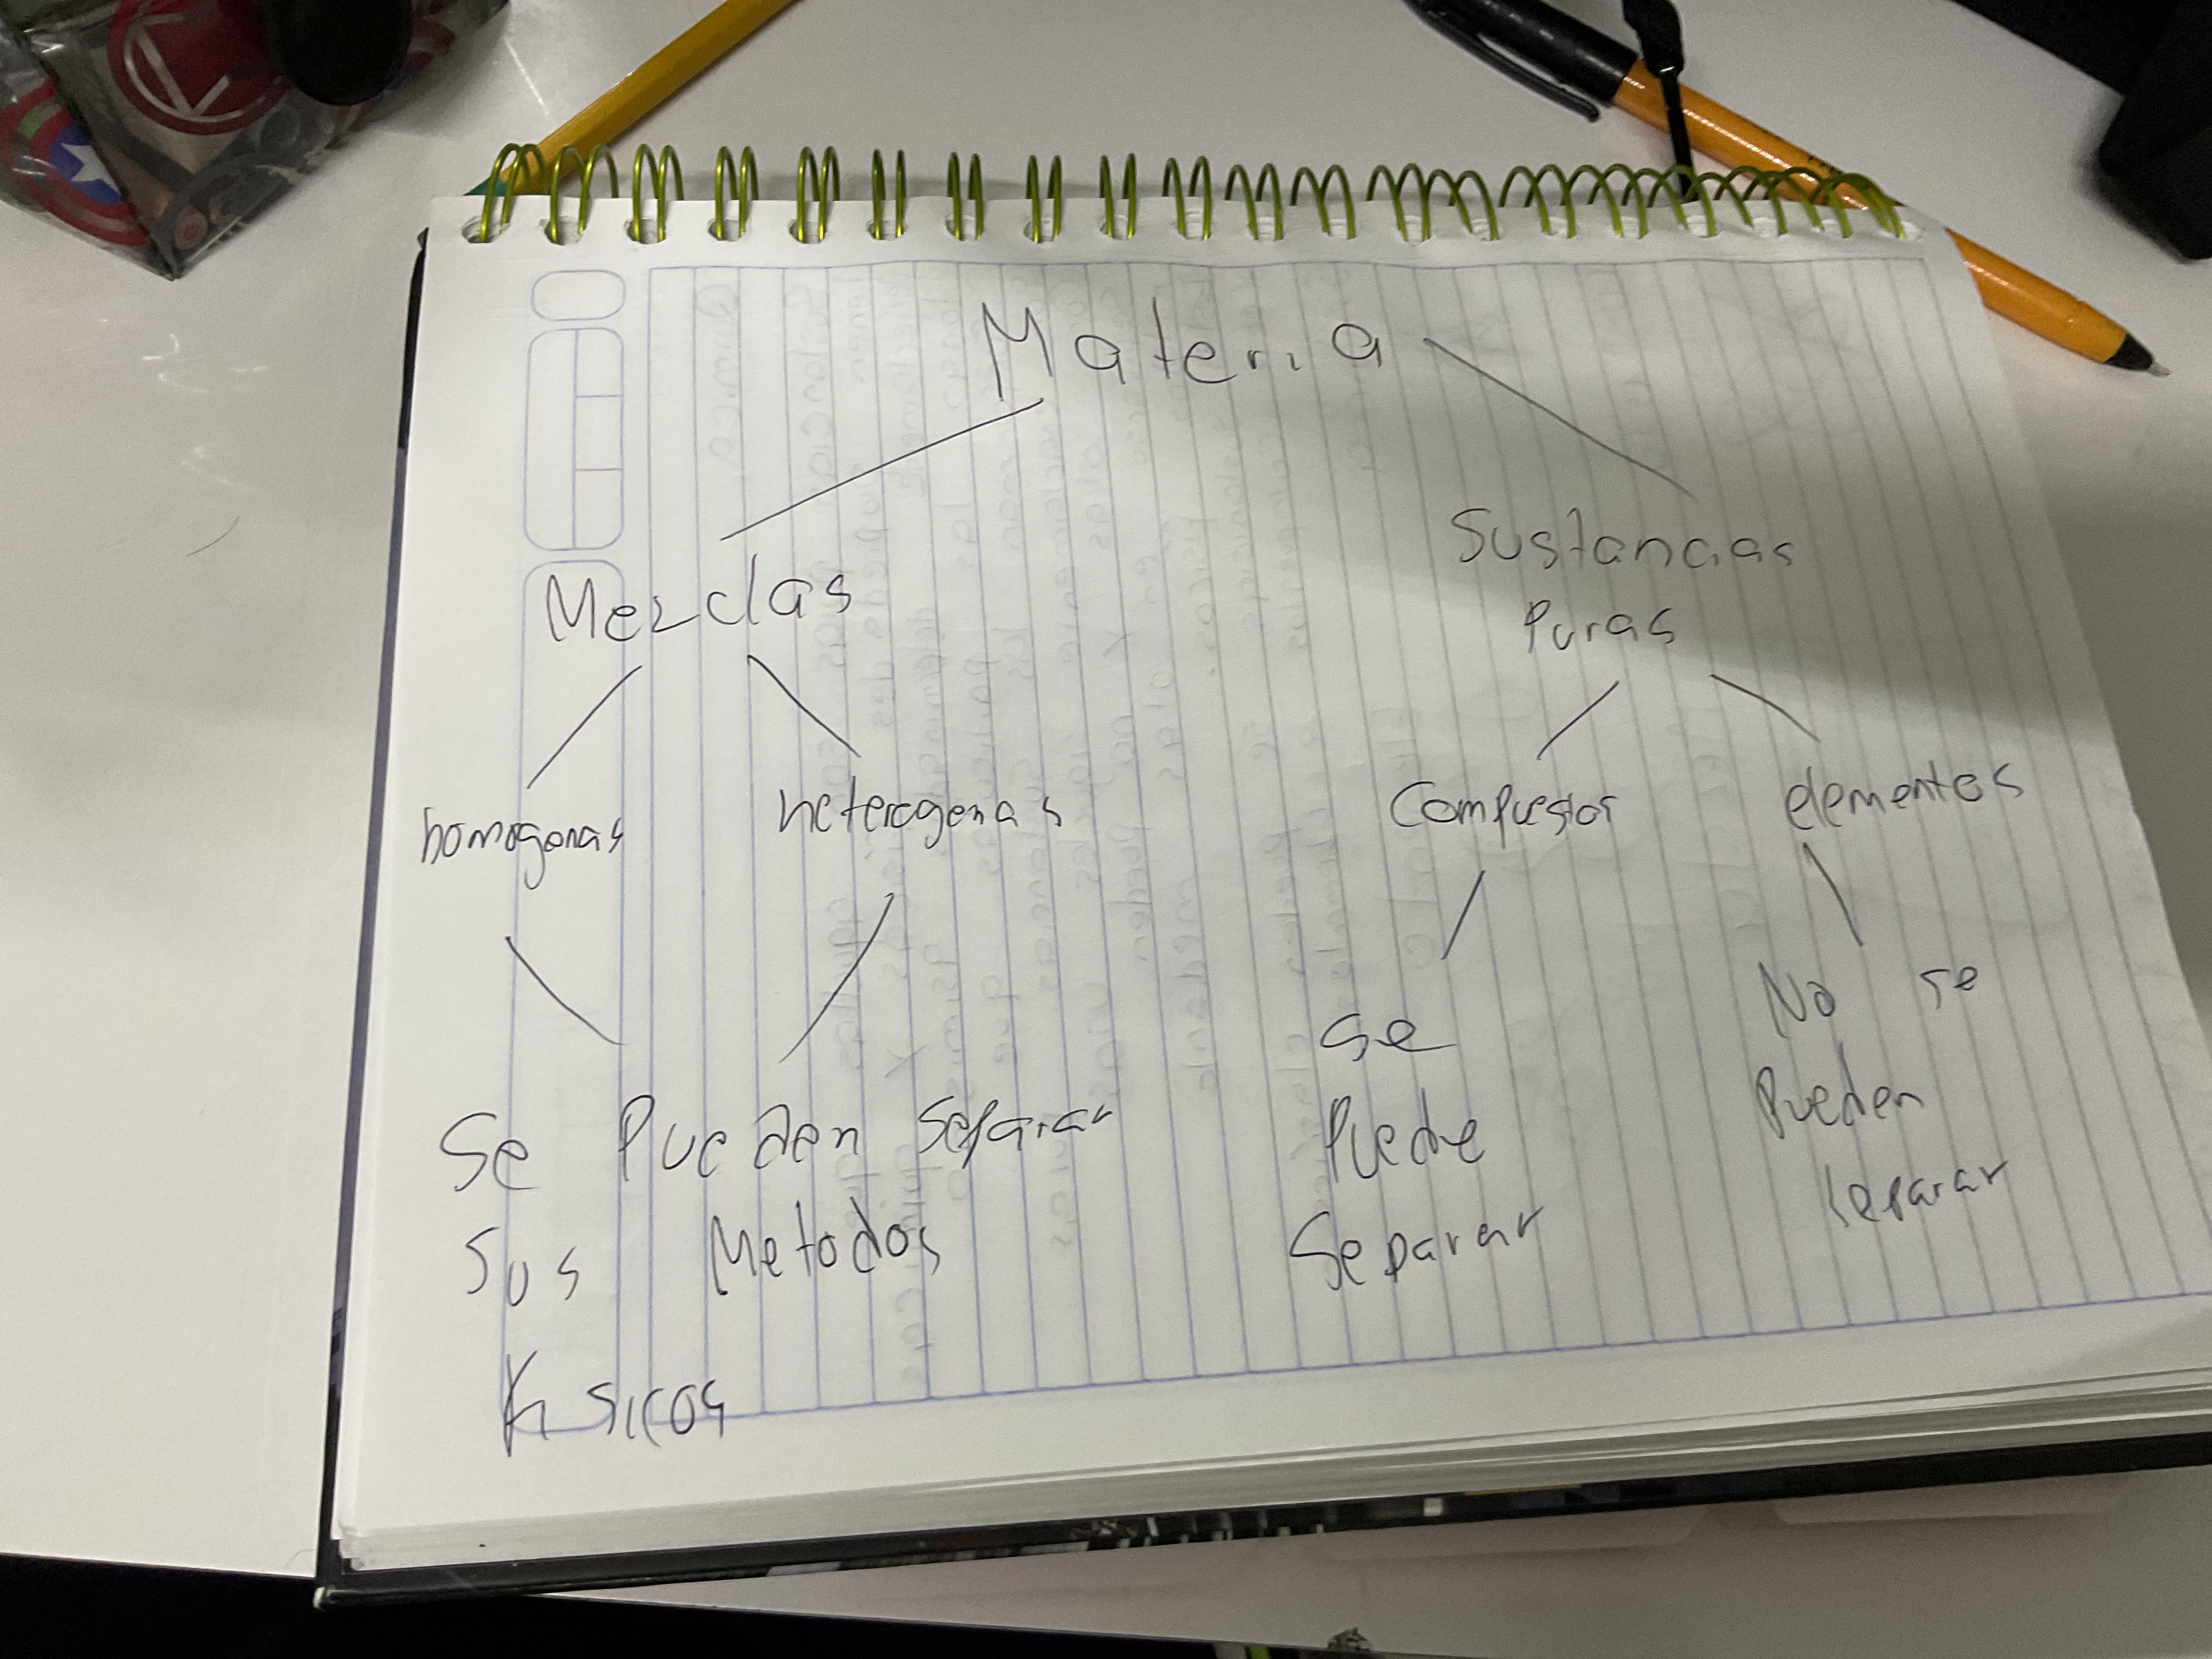 Materia
Mezclas
Sustancias
Puras
homogenas
heterogenas
Compuestos
elementos
Se Pueden Separar
Sus Metodos
Fisicos
Se
Puede
Separar
No se
Pueden
separar